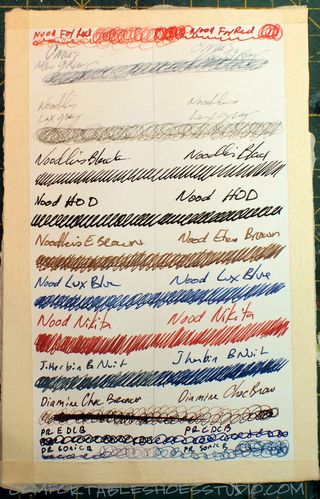 Nood Fox Red Nood Fox Red
Omas Omas
Noodlers Noodlers
Lex Gray Lex Gray
Noodlers Black Noodlers Black
Nood HOD Nood HOD
Noodlers E Brown Nood Eter Brown
Nood Lux Blue Nood Lux Blue
Nood Nikita Nood Nikita
J.Herbin B Nuit J Herbin B Nuit
Diamine Choc Brown Diamine Choc Brow
PR EDCB PR CDCB
PR Sonic B PR Sonic B
COMFORTABLESHOESSTUDIO.COM